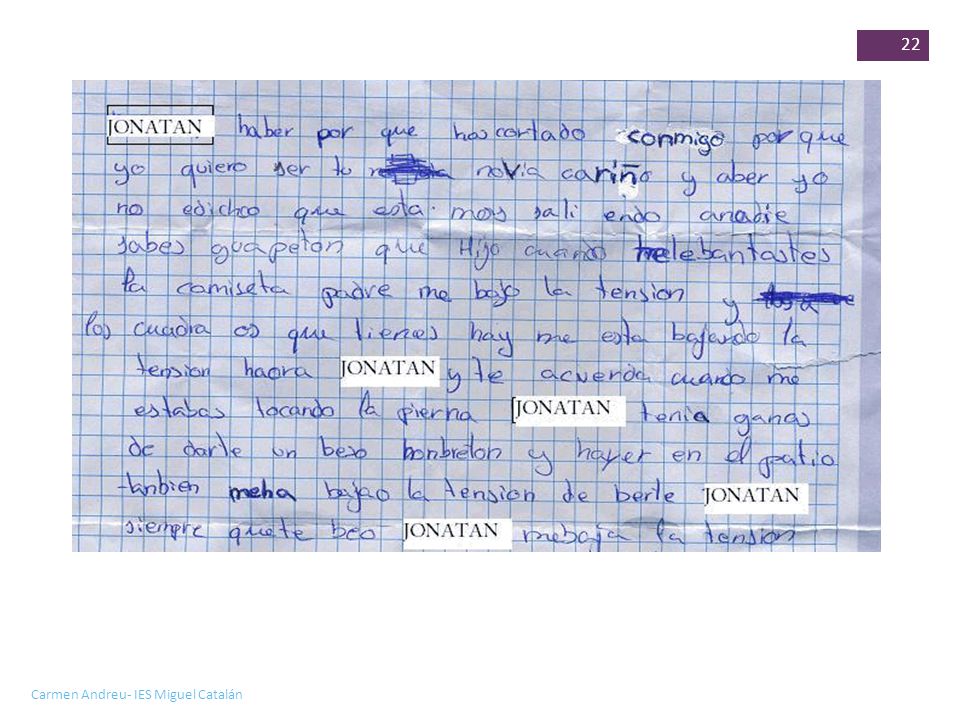 22
JONATAN haber por que has cortado conmigo por que
yo quiero ser tu novia cariño y aber yo
no edicho que esta mos sali endo anadie
sabes guapeton que Hijo cuando melebantastes
la camiseta padre me bajo la tension y
los cuadra os que tienes hay me esta bajando la
tension haora JONATAN y te acuerda cuando me
estabas tocando la pierna JONATAN tenia ganas
de darte un beso bonbreton y hayer en el patio
tanbien meha bajao la tension de berte JONATAN
siempre quete beo JONATAN mebaja la tension
Carmen Andreu- IES Miguel Catalán